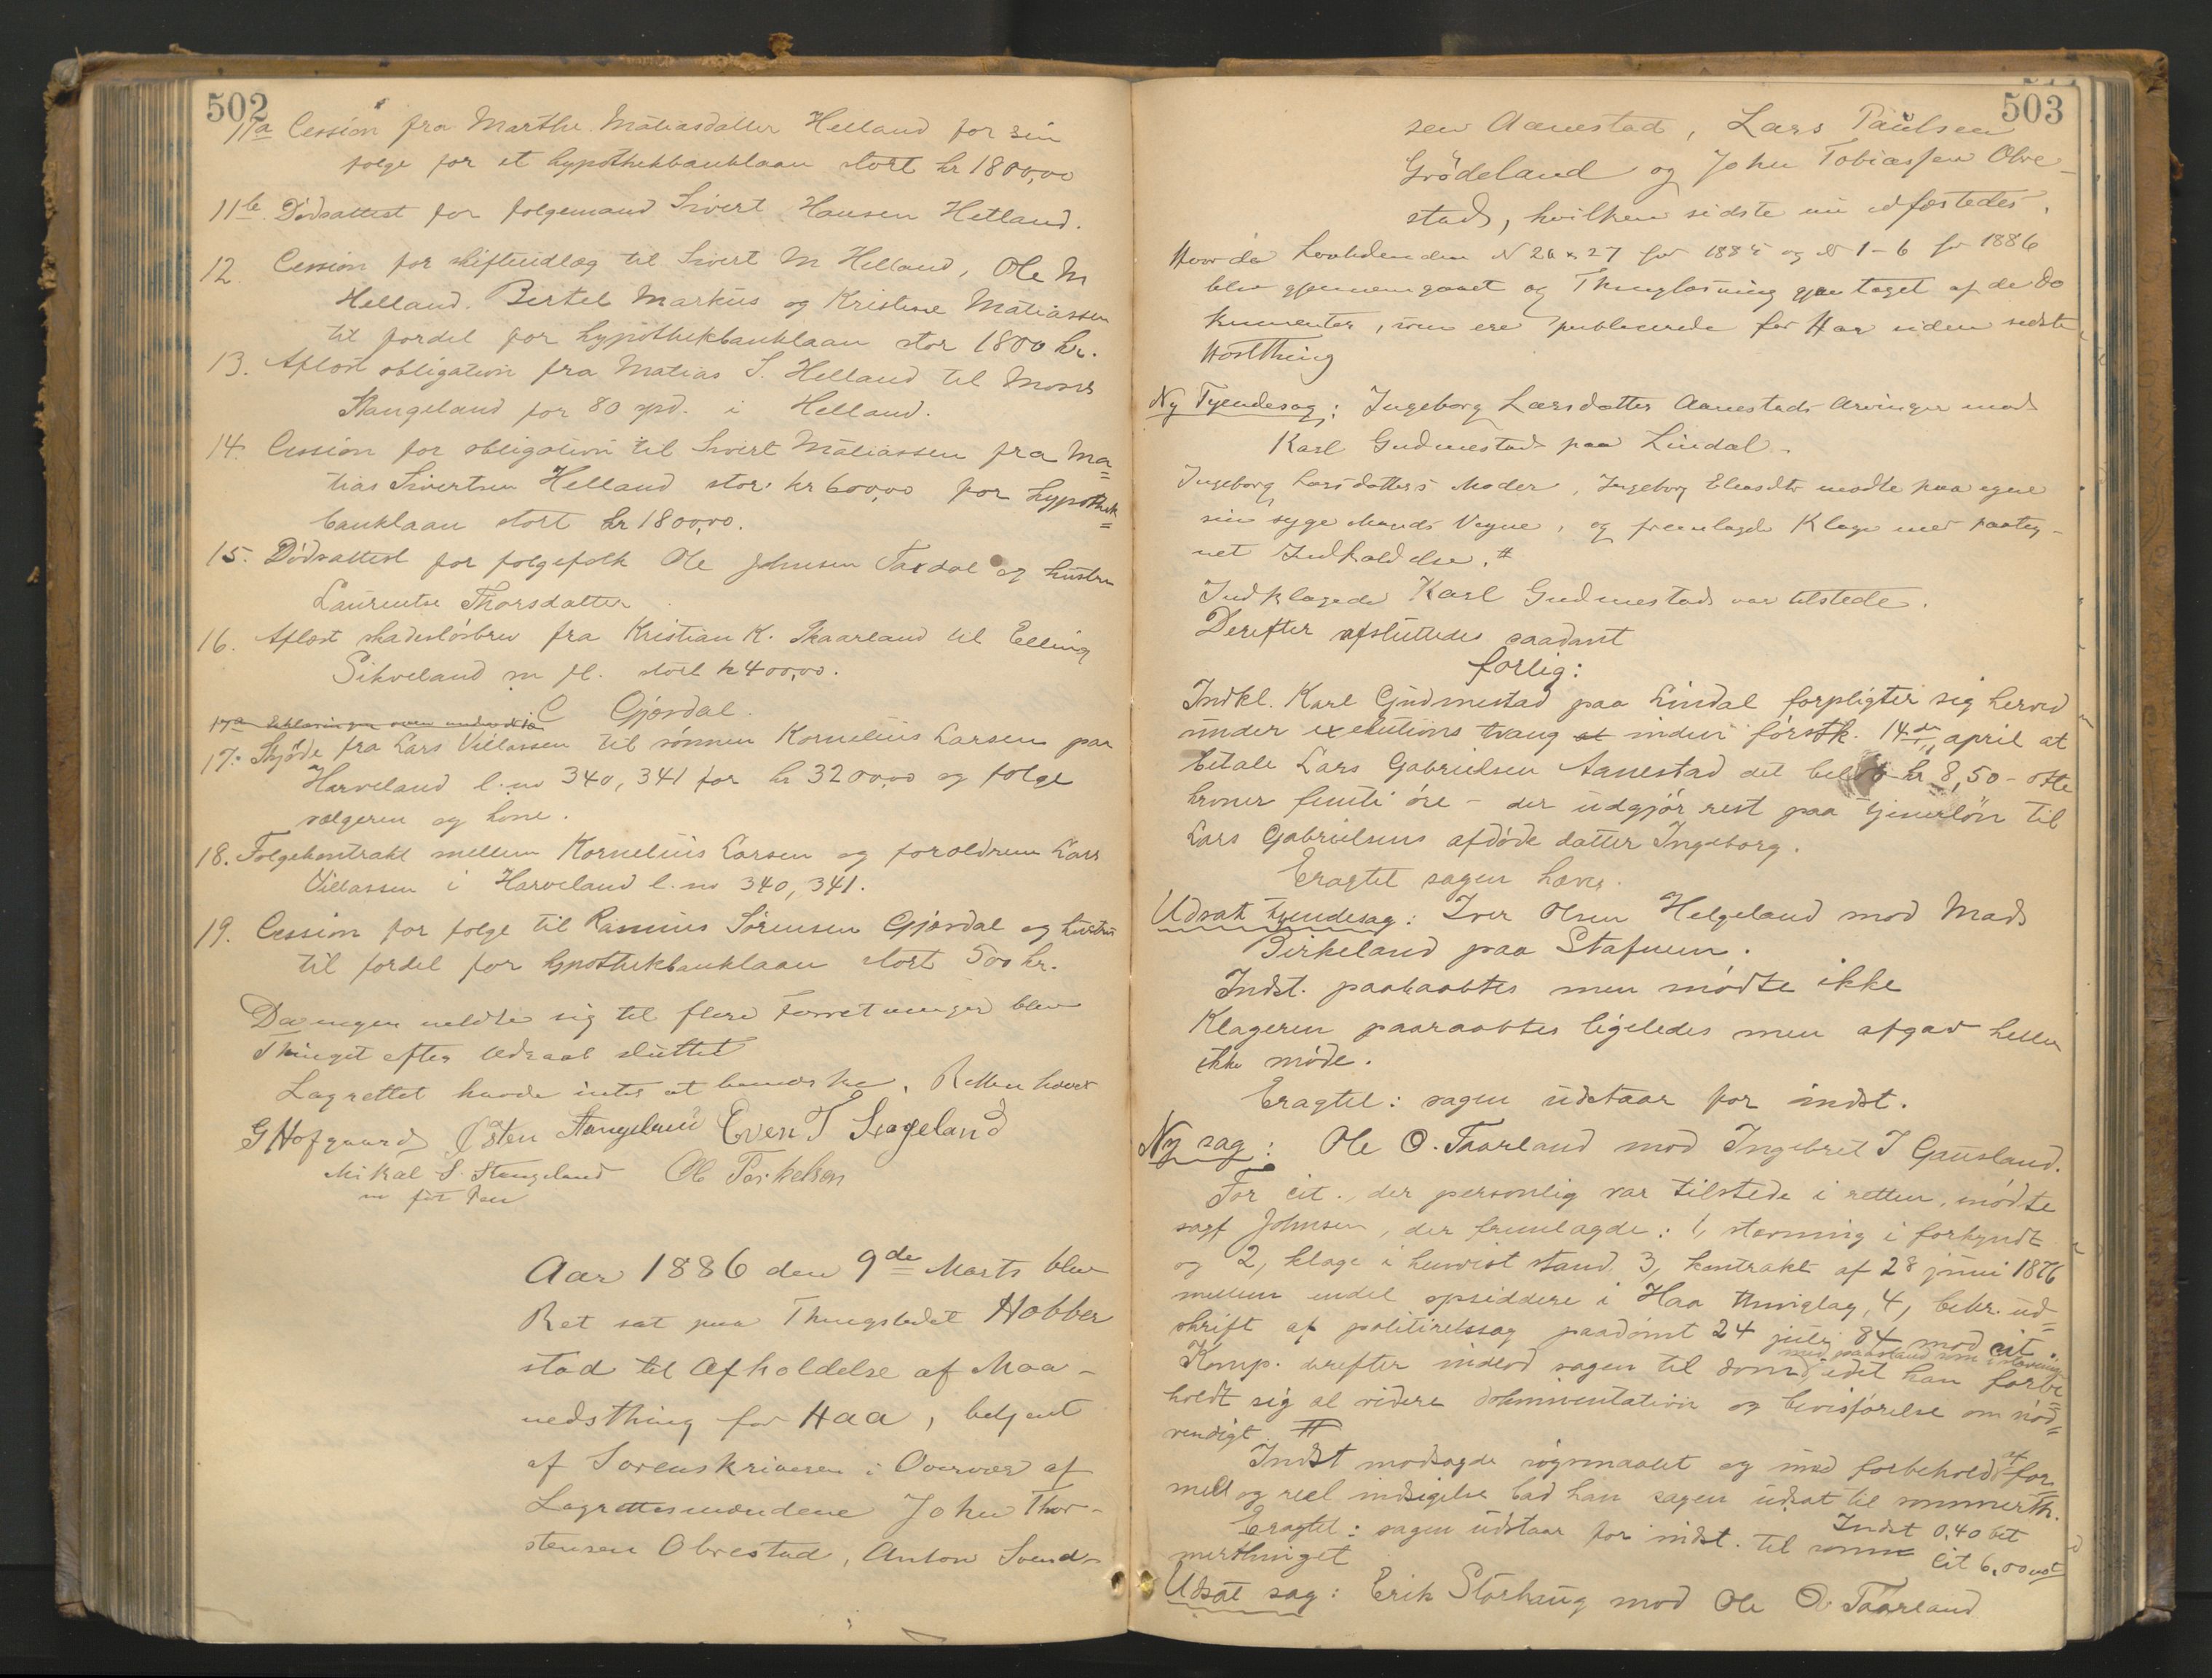 502
11a Cession fra Marthe Matiasdatter Helland for sin
folge for et hypothekbanklaan stort kr 1800,00
11b. Dödsattest for folgemand Sivert Hansen Hetland.
12. Cession for skifteudlæg til Sivert M Helland, Ole M
Helland. Bertel Markus og Kristine Matiassen
til fordel for hypothekbanklaan stor 1800 kr.
13. Aflöst obligation fra Matias S. Helland til Mons
Stangeland for 80 spd. i Helland.
14. Cession for obligation til Sivert Matiassen fra Ma=
tias Sivertsen Helland stor kr 600,00 for hypothek=
banklaan stort kr 1800,00.
15. Dödsattest for folgefolk Ole Johnsen Taxdal og hustru
Laurentse Thorsdatter
16. Aflöst skadeslösbrev fra Kristian K. Skaarland til Elling
Sikveland m fl. stort kr 400,00.
C Gjærdal.
17. Skjöde fra Lars Villassen til sönnen Kornelius Larsen paa
Harveland l.no 340, 341 for kr 3200,00 og folge
sælgeren og kone.
18. Folgekontrakt mellem Kornelius Larsen og forældrene Lars
Villassen i Harveland l.no 340, 341.
19. Cession for folge til Rasmus Sörensen Gjærdal og hustru
til fordel for hypothekbanklaan stort 500 kr.
Da ingen meldte sig til flere Forretninger blev
Thinget efter Udraab sluttet
Lagrettet havde intet at bemærke. Retten hævet
G Hofgaard Østen Stangeland Even T Liageland
Mikal S. Stangeland Ole Terkelsen
m p Pen
Aar 1886 den 9de Marts blev
Ret sat paa Thingstedet Hobber
stad til Afholdelse af Maa-
nedsthing for Haa, betjent
af Sorenskriveren i Overvær af
Lagrettesmændene John Thor-
stensen Obrestad, Anton Svend-
503
sen Aanestad, Lars Paulsen
Grödeland og John Tobiassen Obre-
stad, hvilken sidste nu edfæstedes.
Hvorda Lovtidenden N 26 & 27 for 1885 og N 1-6 for 1886
blev gjennemgaaet og Thinglæsning gjen taget af de Do
kumenter, som ere publicerede for Haa siden sidste
Höstthing
Ny Tyendesag: Ingeborg Larsdatter Aanestads Arvinger mod
Karl Gudmestad paa Lindal.
Ingeborg Larsdatters Moder, Ingeborg Eliasdtr mödte paa egne
sin syge Mands Vegne, og fremlagde Klage med paateg-
net Indkaldelse. #
Indklagede Karl Gudmestad var tilstede.
Derefter afsluttedes saadant
forlig:
Indkl. Karl Gudmestad paa Lindal forpligter sig herved
under exekutions tvang at inden förstk. 14de april at
betale Lars Gabrielsen Aanestad det belöb kr 8,50 - otte
kroner femti öre - der udgjör rest paa tjenerlön til
Lars Gabrielsens afdöde datter Ingeborg.
Eragtet sagen hæves.
Udsat tyendesag: Iver Olsen Helgeland mod Mads
Birkeland paa Stafnum.
Indst. paaraabtes men mödte ikke
Klageren paaraabtes ligeledes men afgav heller
ikke möde.
Eragtet: sagen udstaar for indst.
Ny sag: Ole O. Taarland mod Ingebret I Gausland.
For cit., der personlig var tilstede i retten, mödte
sagf Johnsen, der fremlagde: 1, stævning i forkyndt
og 2, klage i henvist stand. 3, kontrakt af 28 juni 1876
mellem endel opsiddere i Haa thinglag, 4, bekr. ud=
skrift af politiretssag paadömt 24 juli 84 mod cit.
Komp. derefter indlod sagen til dom med paastand som i stævning, idet han forbe=
holdt sig al videre dokumentation og bevisförelse om nöd=
vendigt. #
Indst modsagde sögsmaalet og med forbehold af for=
mell og reel indsigelse bad han sagen udsat til sommerth.
Eragtet: sagen udstaar for indst. til somm
merthinget
Indst 0,40 bet
Cit 6,00 not
Udsat sag: Erik Storhaug mod Ole O. Taarland